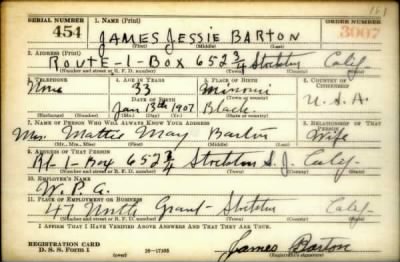 161
SERIAL NUMBER 1. NAME (Print) ORDER NUMBER
454 JAMES JESSIE BARTON 3007
(First) (Middle) (Last)
2. ADDRESS (Print)
ROUTE-1-BOX 652 3/4 Stockton Calif
(Number and street or R. F. D. number) (Town) (County) (State)
3. TELEPHONE 4. AGE IN YEARS 5. PLACE OF BIRTH 6. COUNTRY OF CITIZENSHIP
None 33
DATE OF BIRTH (Town or county)
Jan 13th 1907 Black U.S.A.
(Mo.) (Day) (Yr.) (State or country)
7. NAME OF PERSON WHO WILL ALWAYS KNOW YOUR ADDRESS 8. RELATIONSHIP OF THAT PERSON
Mrs. Mattie May Barton Wife
(Mr., Mrs., Miss) (First) (Middle) (Last)
9. ADDRESS OF THAT PERSON
Rt-1-Box 652 3/4 Stockton S. J. Calif-
(Number and street or R. F. D. number) (Town) (County) (State)
10. EMPLOYER'S NAME
W. P. A.
11. PLACE OF EMPLOYMENT OR BUSINESS
47 North Grant- Stockton Calif-
(Number and street or R. F. D. number) (Town) (County) (State)
I AFFIRM THAT I HAVE VERIFIED ABOVE ANSWERS AND THAT THEY ARE TRUE.
REGISTRATION CARD
D. S. S. Form 1 (over) 16-17105 James Barton
(Registrant's signature)